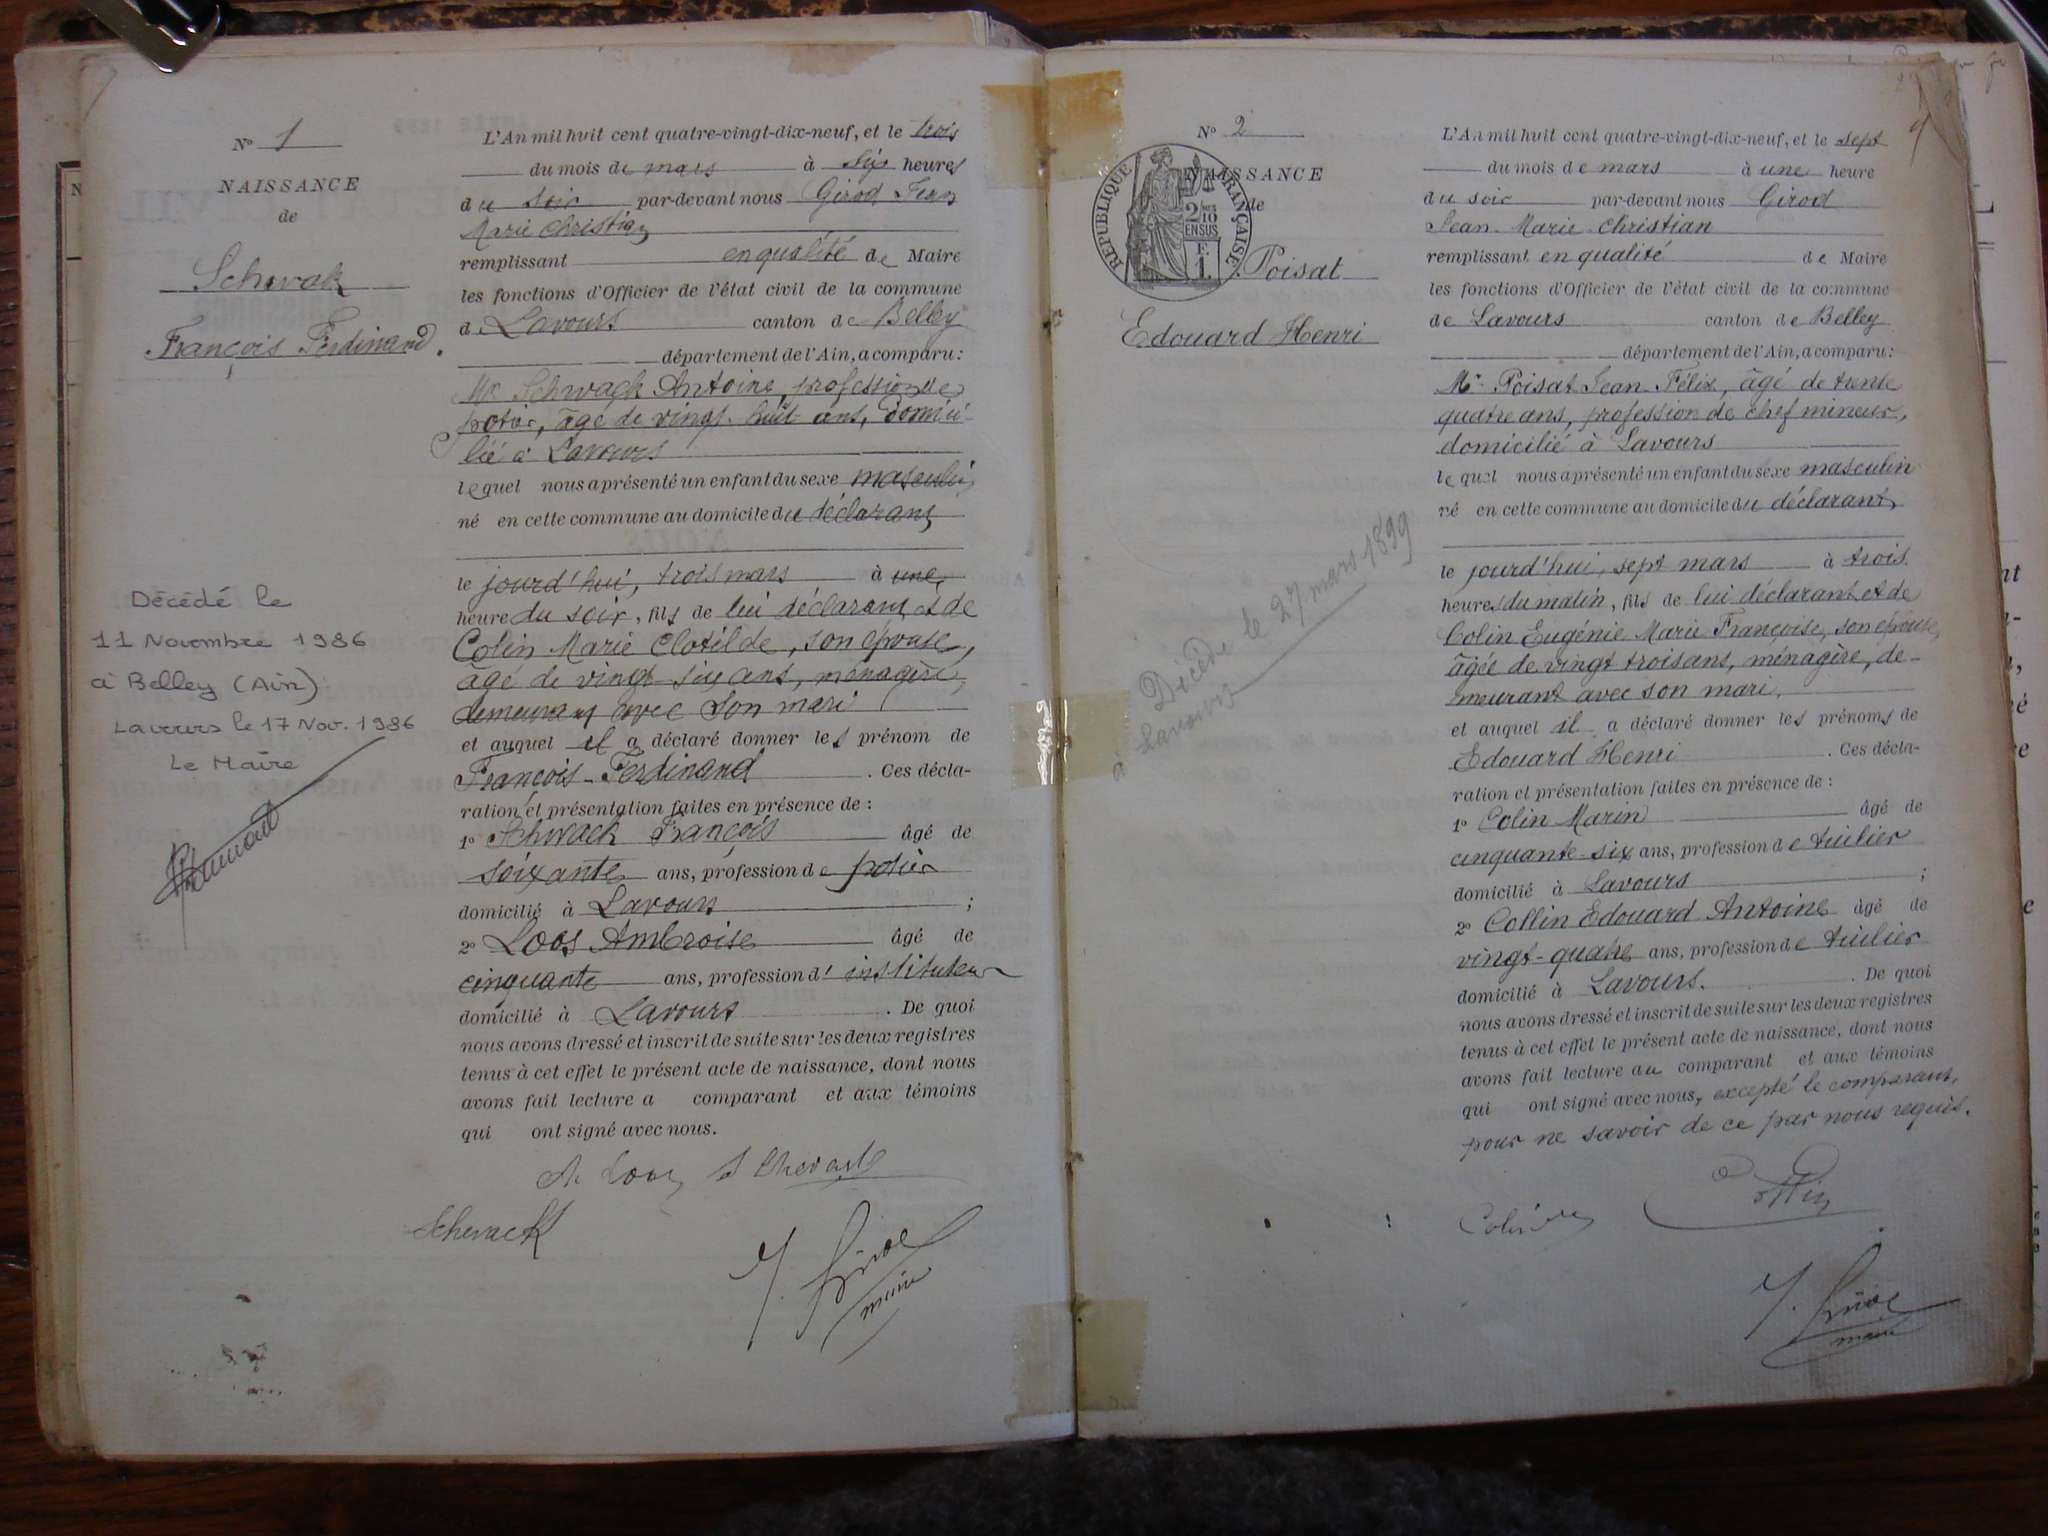 N° 1
NAISSANCE
de
Schwak
François Ferdinand.
Décédé le
11 Novembre 1986
à Belley (Ain)
Lavours le 17 Nov. 1986
Le Maire
L'An mil huit cent quatre-vingt-dix-neuf, et le trois
du mois de mars à six heures
du soir par-devant nous Girod Jean
Marie Christian
remplissant en qualité de Maire
les fonctions d'Officier de l'état civil de la commune
de Lavours canton de Belley
département de l'Ain, a comparu :
Mr Schwack Antoine, profession de
potier, âgé de vingt huit ans, domici-
lié à Lavours
lequel nous a présenté un enfant du sexe masculin
né en cette commune au domicile du déclarant
le jourd'hui, trois mars à une
heure du soir, fils de lui déclarant et de
Colin Marie Clotilde, son épouse,
âgé de vingt six ans, ménagère,
demeurant avec son mari
et auquel il a déclaré donner les prénom de
François-Ferdinand. Ces décla-
ration et présentation faites en présence de :
1° Schwack François âgé de
soixante ans, profession de potier
domicilié à Lavours ;
2° Loos Ambroise âgé de
cinquante ans, profession d'instituteur
domicilié à Lavours. De quoi
nous avons dressé et inscrit de suite sur les deux registres
tenus à cet effet le présent acte de naissance, dont nous
avons fait lecture a comparant et aux témoins
qui ont signé avec nous.
A. Loos
Schwack
J. Girod
maire
N° 2
NAISSANCE
de
RÉPUBLIQUE FRANÇAISE
2/10
EN SUS
F.
1.
Poisat
Edouard Henri
Décédé le 27 mars 1899
à Lavours
L'An mil huit cent quatre-vingt-dix-neuf, et le sept
du mois de mars à une heure
du soir par-devant nous Girod
Jean-Marie-Christian
remplissant en qualité de Maire
les fonctions d'Officier de l'état civil de la commune
de Lavours canton de Belley
département de l'Ain, a comparu :
Mr Poisat Jean-Félix, âgé de trente
quatre ans, profession de chef mineur,
domicilié à Lavours
lequel nous a présenté un enfant du sexe masculin
né en cette commune au domicile du déclarant,
le jourd'hui, sept mars à trois
heures du matin, fils de lui déclarant et de
Colin Eugénie Marie Françoise, son épouse,
âgée de vingt trois ans, ménagère, de-
meurant avec son mari,
et auquel il a déclaré donner les prénoms de
Edouard Henri. Ces décla-
ration et présentation faites en présence de :
1° Colin Marin âgé de
cinquante-six ans, profession de tuilier
domicilié à Lavours ;
2° Collin Edouard Antoine âgé de
vingt-quatre ans, profession de tuilier
domicilié à Lavours. De quoi
nous avons dressé et inscrit de suite sur les deux registres
tenus à cet effet le présent acte de naissance, dont nous
avons fait lecture au comparant et aux témoins
qui ont signé avec nous, excepté le comparant,
pour ne savoir de ce par nous requis.
Colin
J. Girod
maire